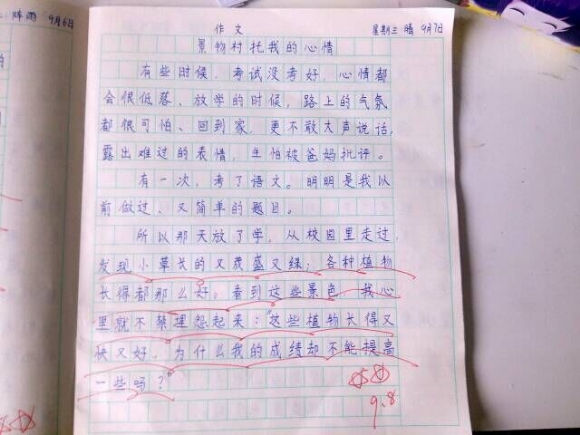 阵雨 9月6日
作文
星期三 晴 9月7日
景物衬托我的心情
有些时候，考试没考好，心情都
会很低落、放学的时候，路上的气氛
都很可怕、回到家，更不敢大声说话，
露出难过的表情，生怕被爸妈批评。
有一次，考了语文。明明是我以
前做过、又简单的题目。
所以那天放了学，从校园里走过，
发现小草长的又茂盛又绿；各种植物
长得都那么好。看到这些景色，我心
里就不禁埋怨起来："这些植物长得又
快又好，为什么我的成绩却不能提高
一些吗？"
9.8